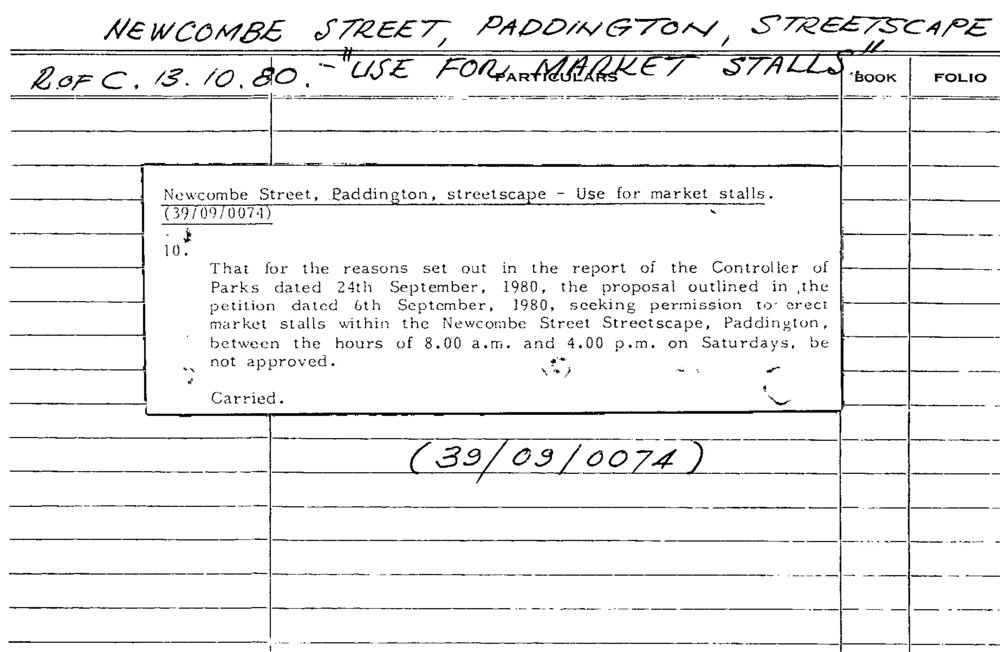 NEWCOMBE STREET, PADDINGTON, STREETSCAPE
R. OF C. 13.10.80. - "USE FOR MARKET STALLS"
PARTICULARS BOOK FOLIO
Newcombe Street, Paddington, streetscape - Use for market stalls.
(39/09/0074)
10.
That for the reasons set out in the report of the Controller of
Parks dated 24th September, 1980, the proposal outlined in the
petition dated 6th September, 1980, seeking permission to erect
market stalls within the Newcombe Street Streetscape, Paddington,
between the hours of 8.00 a.m. and 4.00 p.m. on Saturdays, be
not approved.
Carried.
(39/09/0074)